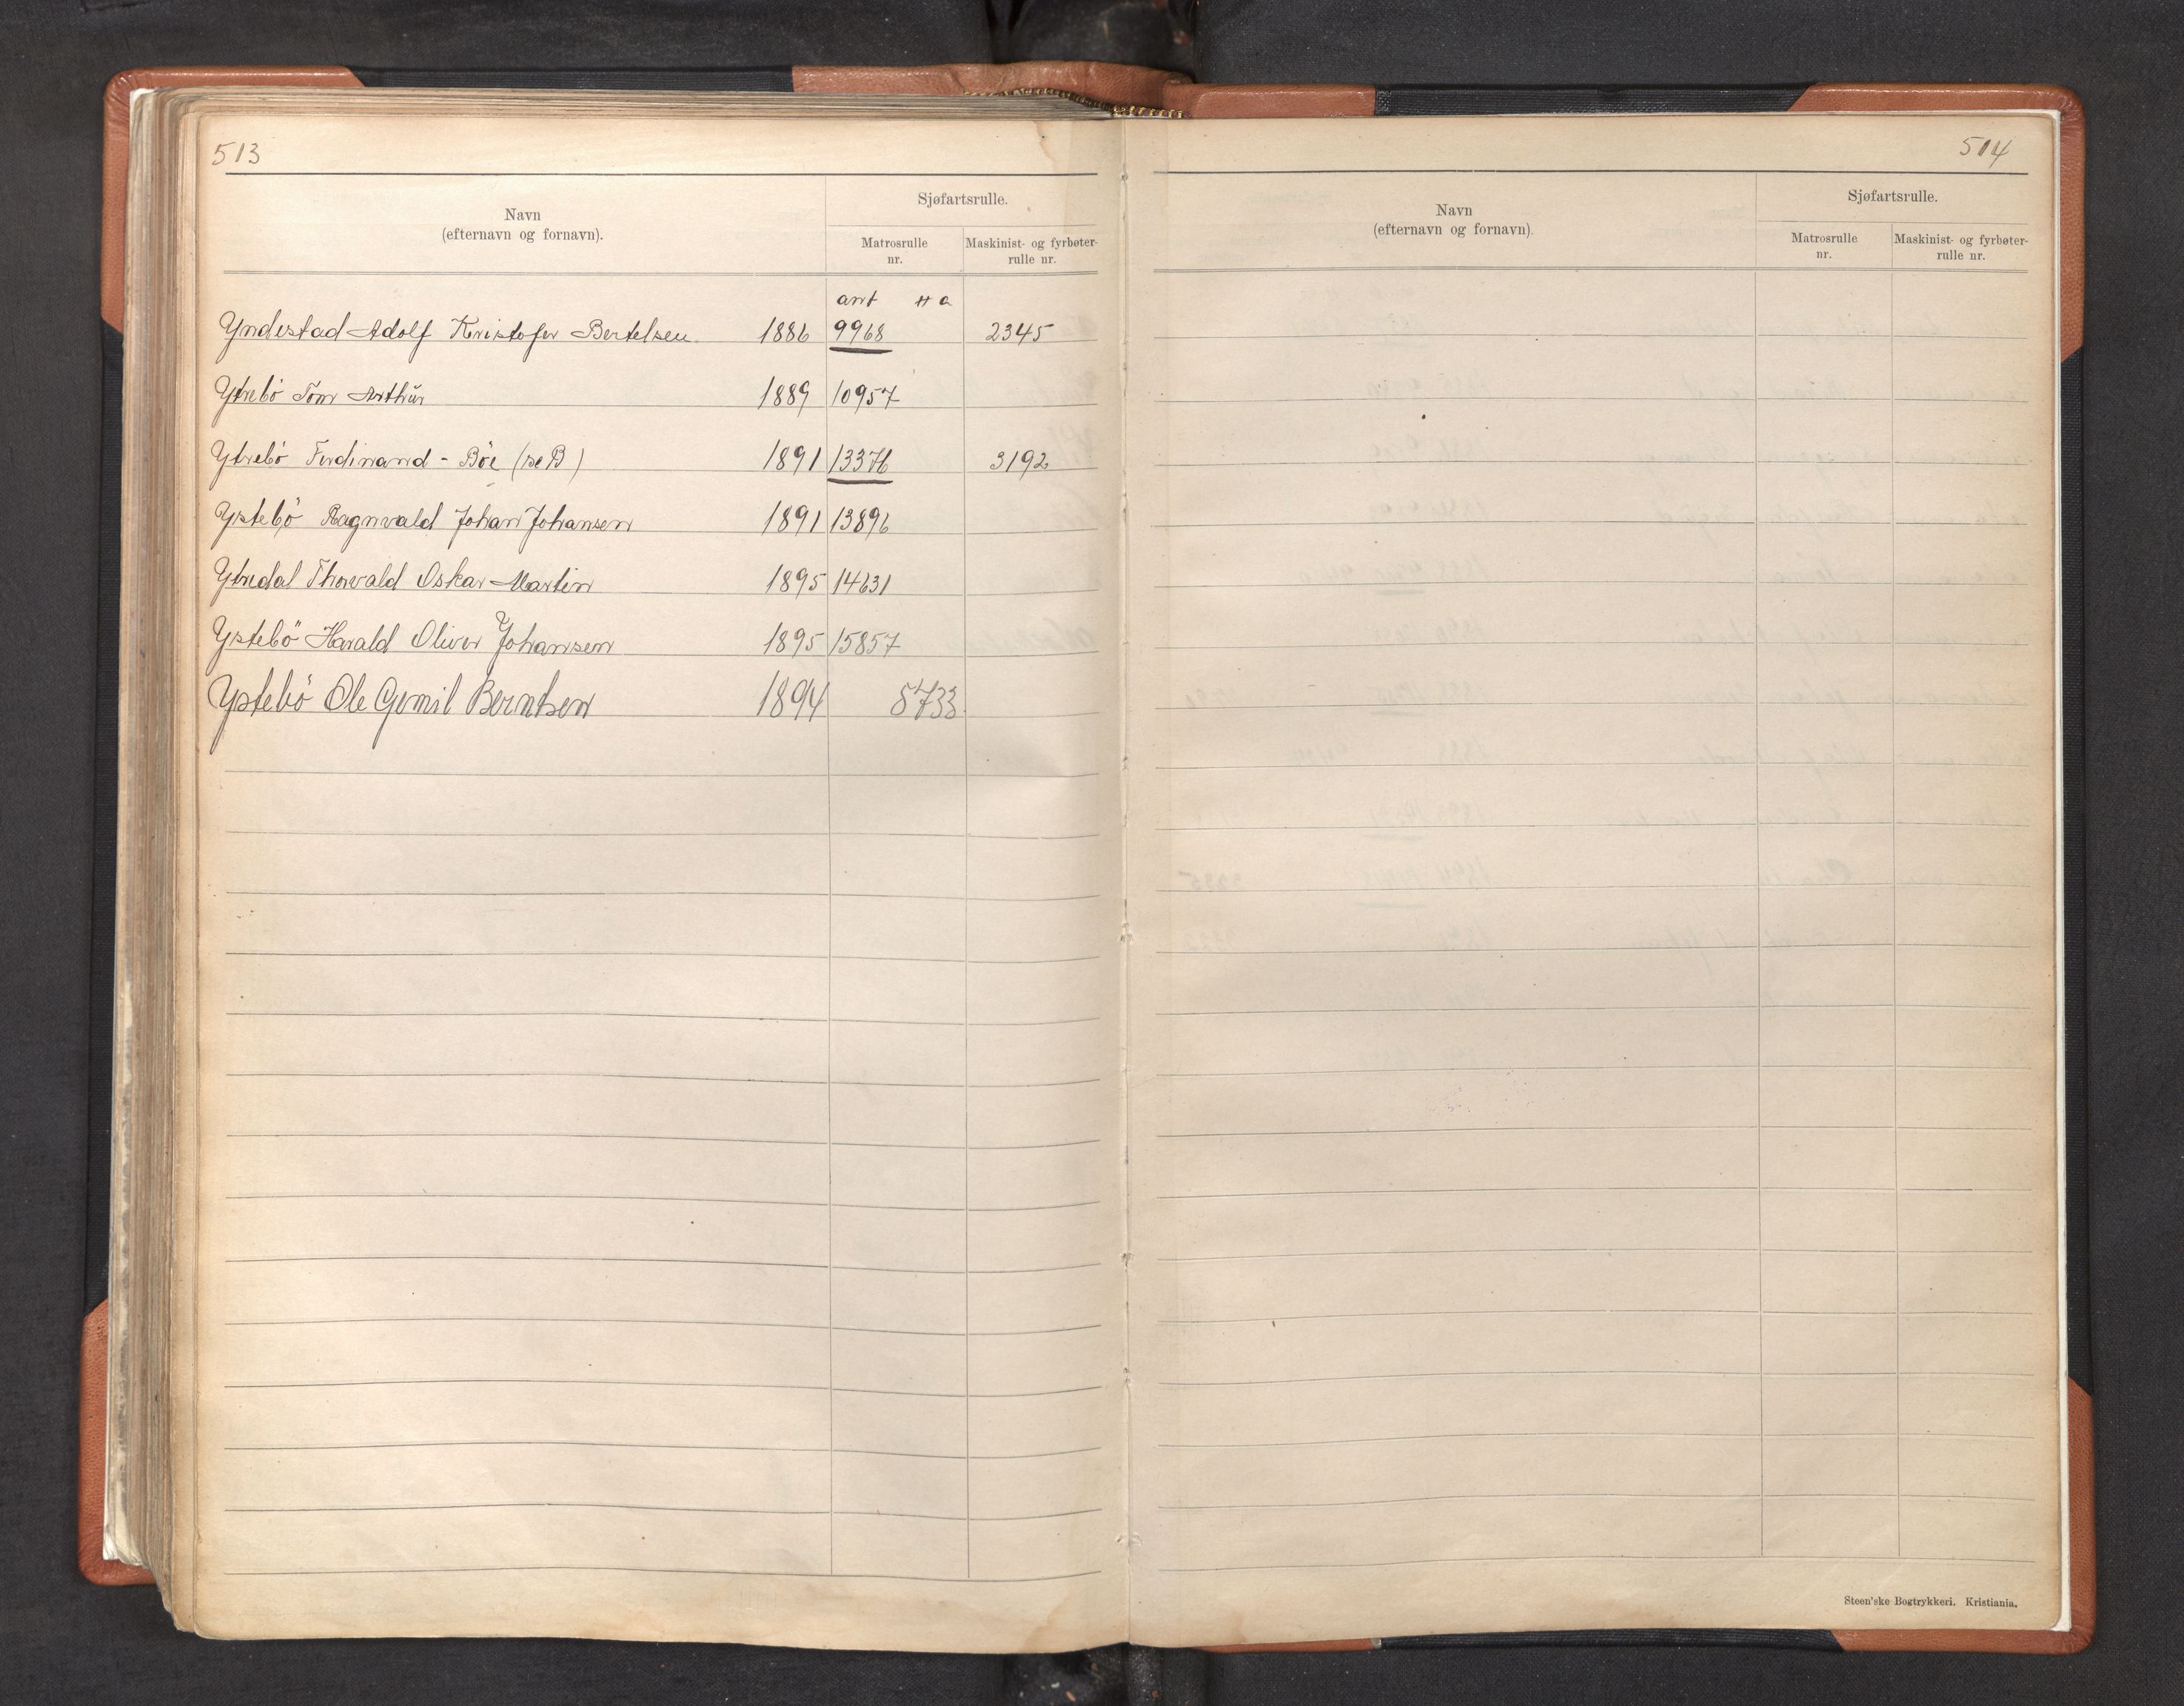 513
Navn
(efternavn og fornavn).
Sjøfartsrulle.
Matrosrulle
nr.
Maskinist- og fyrbøter-
rulle nr.
ant # a
Yndestad Adolf Kristofer Bertelsen. 1886 9968 2345
Ytrebö Tom Arthur 1889 10957
Ytrebö Ferdinand - Böe (se B) 1891 13376 3192
Ystebö Ragnvald Johan Johansen 1891 13896
Ytredal Thorvald Oskar Martin 1895 14631
Ystebö Harald Oliver Johansen 1895 15857
Ystebö Ole Berntsen 1894 5733
514
Navn
(efternavn og fornavn).
Sjøfartsrulle.
Matrosrulle
nr.
Maskinist- og fyrbøter-
rulle nr.
Steen'ske Bogtrykkeri. Kristiania.